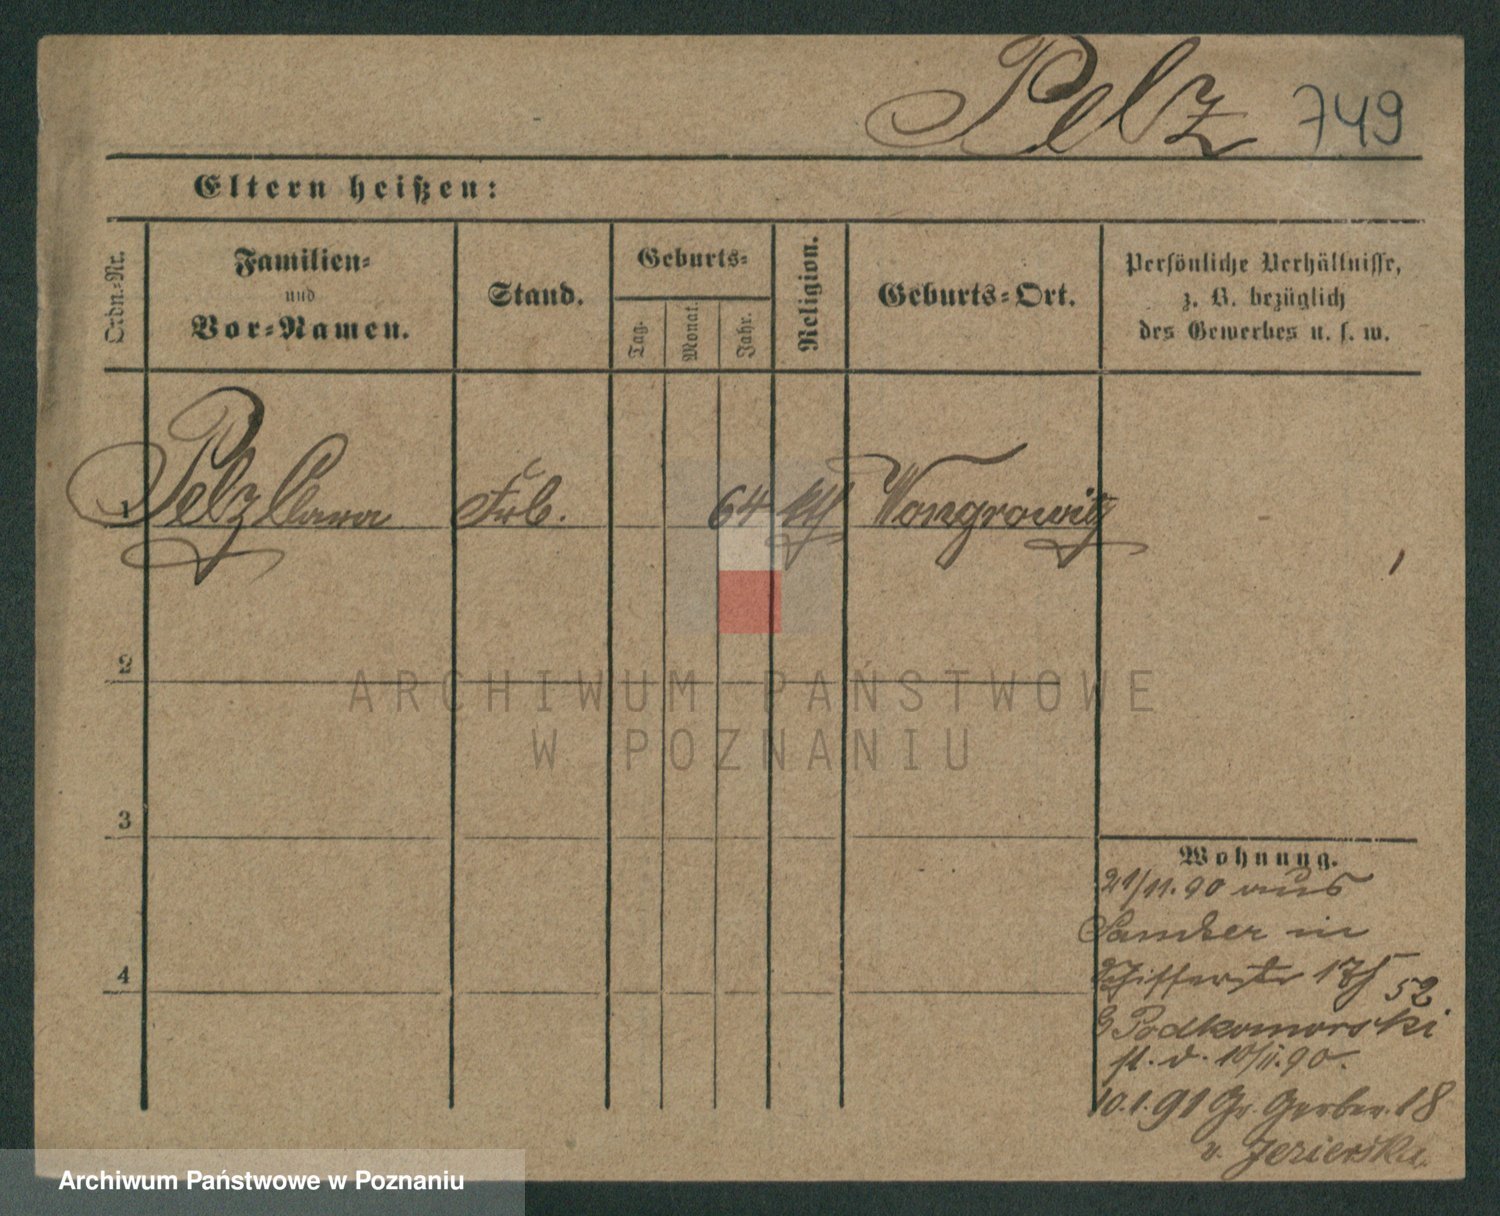 Pelz 749
Eltern heißen:
Ordn.-Nr.
Familien-
und
Vor-Namen.
Stand.
Geburts-
Tag.
Monat.
Jahr.
Religion.
Geburts-Ort.
Persönliche Verhältnisse,
z. B. bezüglich
des Gewerbes u. s. w.
1 Pelz Clara 64 Wongrowitz
2
3
4
Wohnung.
21/11.90 aus
Samter in
Schifferstr 17
52
Podkomorski
10/11.90.
10.1.91 Gr. Gerber. 18
v. Jezierska
ARCHIWUM PAŃSTWOWE
W POZNANIU
Archiwum Państwowe w Poznaniu